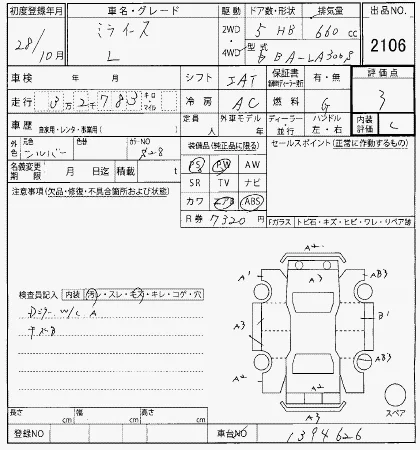 初度登録年月 車名・グレード 駆動 ドア数・形状 排気量 出品NO.
28/10月 ミライース L 2WD・4WD 5 HB 660 cc 2106
型式 DBA-LA300S
車検 年 月 シフト IAT 保証書 有・無 評価点
走行 3万2千783 キロ・マイル 冷房 AC 燃料 G 3
車歴 自家用・レンタ・事業用( ) 定員 人 外車モデル 年 ディーラー・並行 ハンドル 左・右 内装評価 C
外色 元色 シルバー 色替 カラーNO S28 装備品(純正品に限る) セールスポイント(正常に作動するもの)
名義変更期限 月 日迄 積載量 t PS PW AW
注意事項(欠品・修復・不具合箇所および状態) SR TV ナビ
カワ エアB ABS
R券 7320円 Fガラス トビ石・キズ・ヒビ・ワレ・リペア跡
A2
A1 A3 AB3
検査員記入 内装 汚レ・スレ・モス・キレ・コゲ・穴
Dミラー W/C A
キズB
A3 B1
A2 AB3
A2 A2
A3
スペア
長さ cm 幅 cm 高さ cm
登録NO 車台NO 1394626